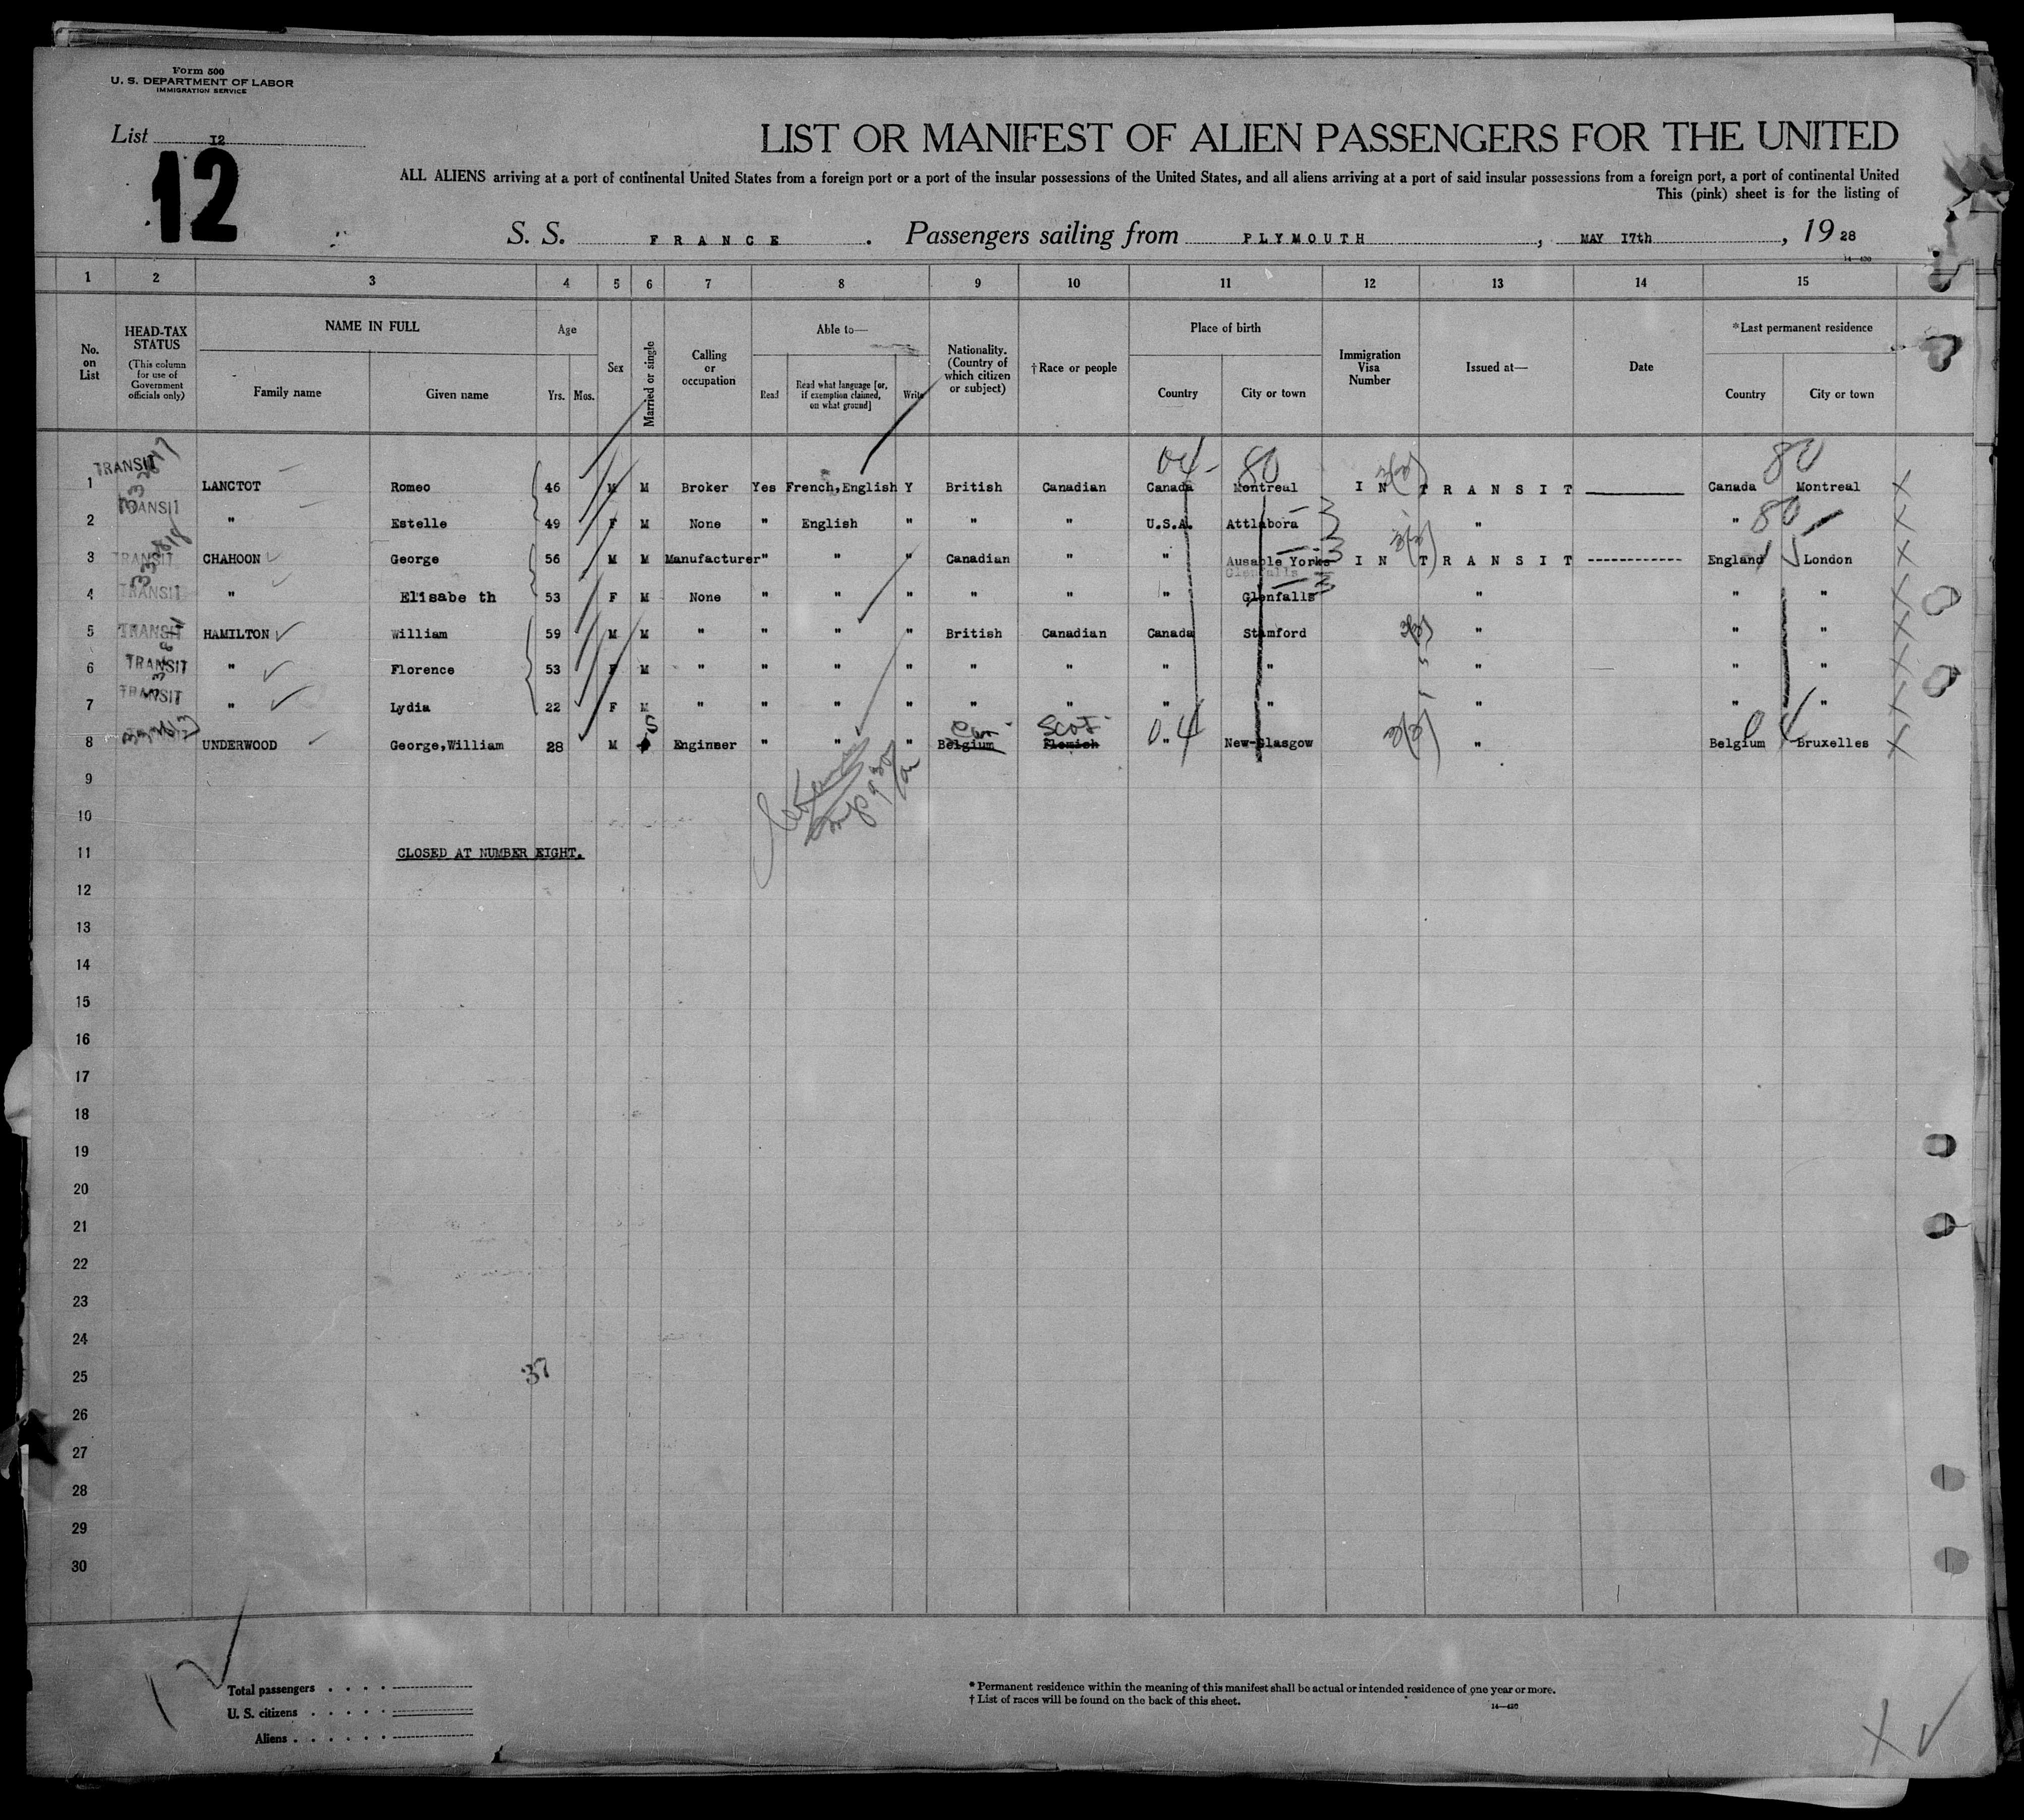 Form 500
U. S. DEPARTMENT OF LABOR
IMMIGRATION SERVICE
List I2
12
LIST OR MANIFEST OF ALIEN PASSENGERS FOR THE UNITED
ALL ALIENS arriving at a port of continental United States from a foreign port or a port of the insular possessions of the United States, and all aliens arriving at a port of said insular possessions from a foreign port, a port of continental United
This (pink) sheet is for the listing of
S. S. FRANCE. Passengers sailing from PLYMOUTH, MAY I7th, 19 28
14—430
1 2 3 4 5 6 7 8 9 10 11 12 13 14 15
No. on List
HEAD-TAX STATUS (This column for use of Government officials only)
NAME IN FULL
Family name Given name
Age
Yrs. Mos.
Sex
Married or single
Calling or occupation
Able to—
Read Read what language [or, if exemption claimed, on what ground] Write
Nationality. (Country of which citizen or subject)
†Race or people
Place of birth
Country City or town
Immigration Visa Number
Issued at—
Date
*Last permanent residence
Country City or town
04- 80 80
1 TRANSIT LANCTOT Romeo 46 M M Broker Yes French,English Y British Canadian Canada Montreal IN TRANSIT Canada Montreal X
2 TRANSIT " Estelle 49 F M None " English " " " U.S.A. Attlabora " " 80 X
3 TRANSIT CHAHOON George 56 M M Manufacturer " " " Canadian " " Ausable Yorks IN TRANSIT ------------ England London X
Glenfalls
4 TRANSIT " Elisabe th 53 F M None " " " " " " Glenfalls " " " X
5 TRANSIT HAMILTON William 59 M M " " " " British Canadian Canada Stamford " " " X
6 TRANSIT " Florence 53 F M " " " " " " " " " " " X
7 TRANSIT " Lydia 22 F M " " " " " " " " " " " X
S Can Scot 04
8 UNDERWOOD George,William 28 M Engineer " " " Belgium Flemish " New-Glasgow " Belgium Bruxelles X
9
10
11 CLOSED AT NUMBER EIGHT.
12
13
14
15
16
17
18
19
20
21
22
23
24
25 37
26
27
28
29
30
Total passengers
U. S. citizens
Aliens
* Permanent residence within the meaning of this manifest shall be actual or intended residence of one year or more.
† List of races will be found on the back of this sheet.
14—430
X